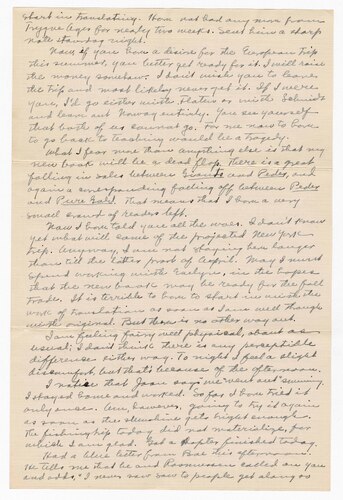 start in translating. Have not had any more from
Trygve Ager for nearly two weeks. Sent him a sharp
note standard night!
Now if you have a desire for the European trip
this summer, you better get ready for it. I will raise
the money somehow. I don't wish you to leave
the trip and most likely never get it. If I were
you, I'd go either with Flaten or with Schmidt
and leave out Norway entirely. You see yourself
that both of us cannot go. For me now to have
to go back to teaching would be a tragedy.
What I fear more than anything else is that my
new book will be a dead flop. there is a great
falling in sales between Giants and Peder, and
again a corresponding falling off between Peder
and Pure Gold. That means that I have a very
small crowd of readers left.
Now I have told you all the woes. I don't know
yet what will come of the projected New York
trip. Anyway, I am not staying here longer
than till the latter part of April. May I must
spend working with Evelyn, in the hopes
that the new book may be ready for the fall
trade. It is terrible to have to start in with the
work of translation as soon as I am well through
with original. But there is no other way out.
I am feeling fairly well physical, about as
usual; I don't think there is any perceptible
difference either way. To night I feel a slight
discomfort, but that's because of the afternoon.
I notice that Joan says we went out swimming.
I stayed home and worked. So far I have tried it
only once. Am, however, going to try it again
as soon as the moonshine gets bright enough.
the fishing trip today did not materialize, for
which I am glad. Got a chapter finished today.
Had a blue letter from Boe this afternoon.
He tells me that he and Rasmussen called on you
and adds: "I never saw people get along as